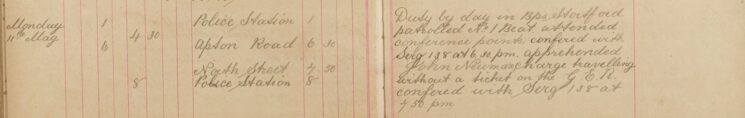 Monday 1 Police Station 1
11th May 4 30
6 Apton Road 6 30
North Street 4 50
8 Police Station 8
Duty by day in Bps Stortford
patrolled No 1 Beat attended
conference points confered with
Serg 138 at 6.30 pm. apprehended
John Newman charge travelling
without a ticket on the G.E.R.
confered with Serg 138 at
4 50 pm